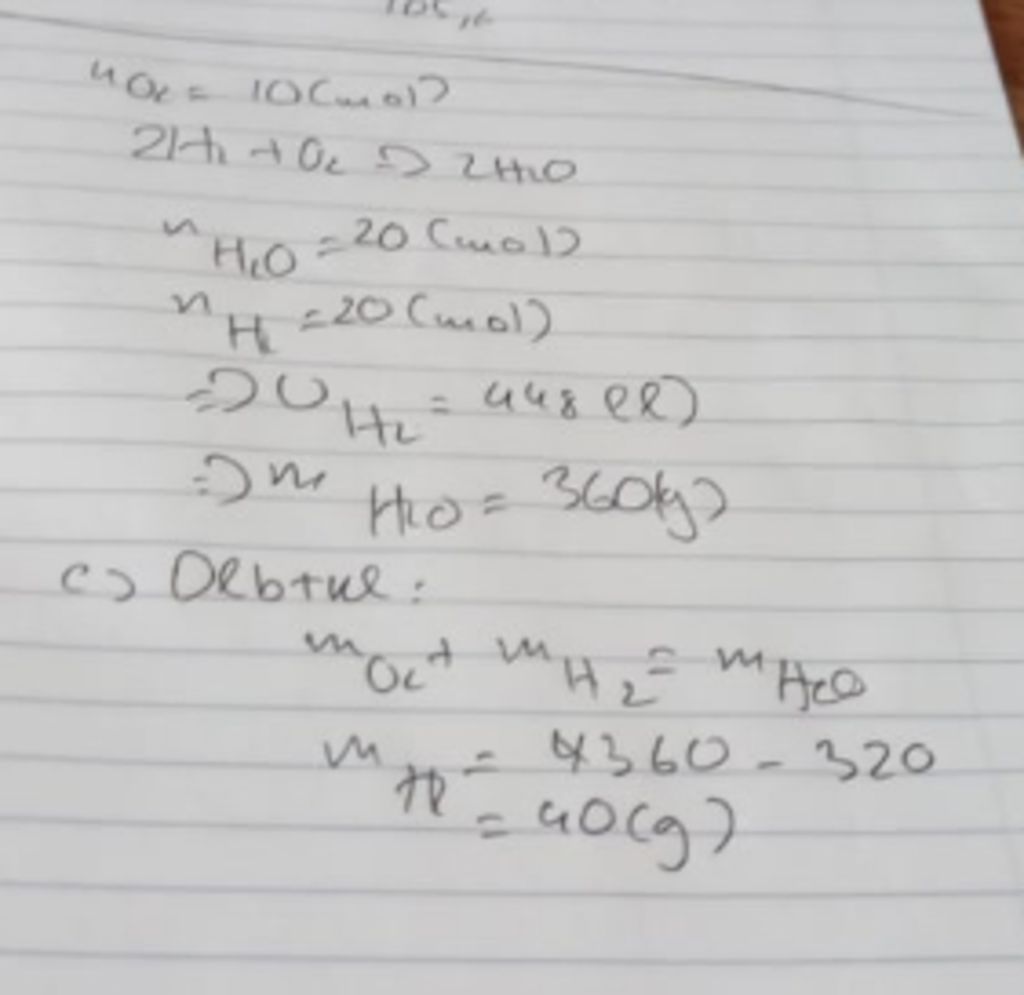 nO2 = 10 (mol)
2H2 + O2 => 2H2O
nH2O = 20 (mol)
nH2 = 20 (mol)
=> VH2 = 448 (l)
=> mH2O = 360(g)
c) ĐLBTKL:
mO2 + mH2 = mH2O
mH2 = 360 - 320
= 40 (g)